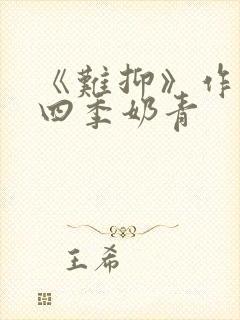 《難抑》作
四季奶青
王希